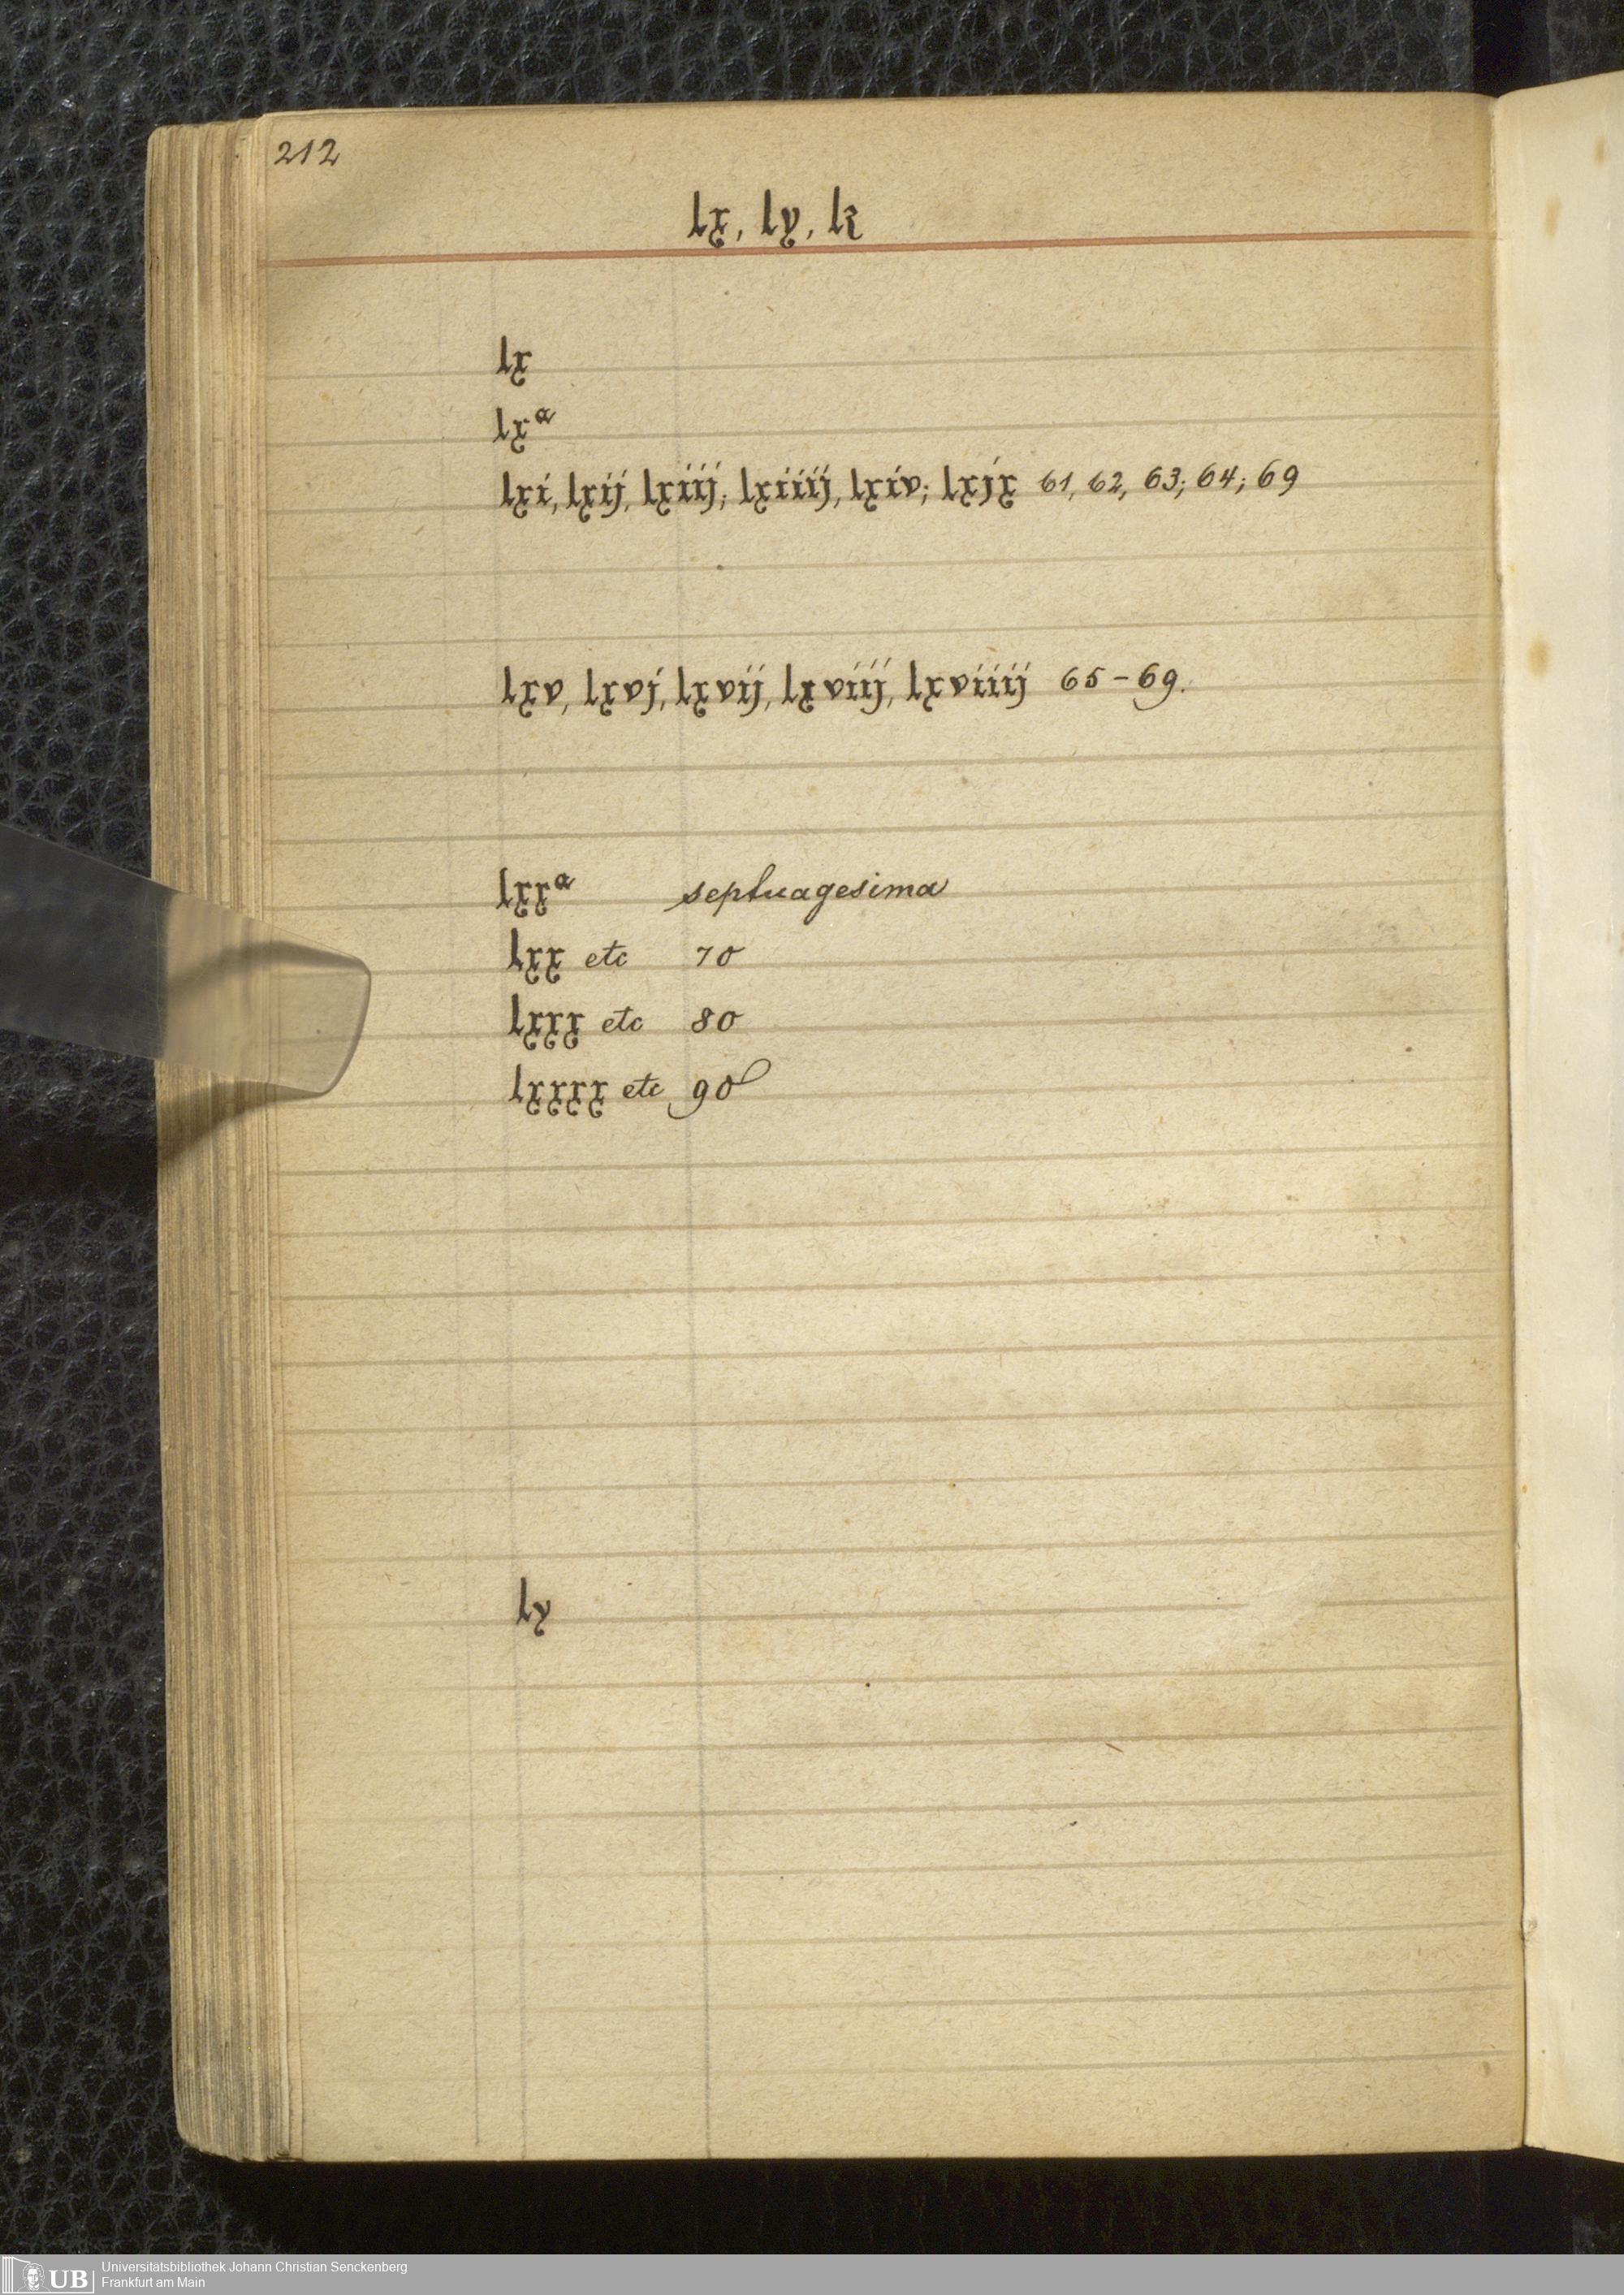 212
lx, ly, lz
lx
lxᵃ
lxi, lxij, lxiij; lxiiij, lxiv; lxjx 61, 62, 63; 64; 69
lxv, lxvj, lxvij, lxviij, lxviiij 65-69.
lxxᵃ septuagesima
lxx etc 70
lxxx etc 80
lxxxx etc 90
ly
UB Universitätsbibliothek Johann Christian Senckenberg
Frankfurt am Main